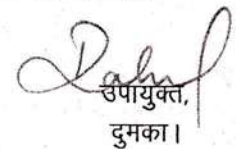 Rahul
उपायुक्त,
दुमका।